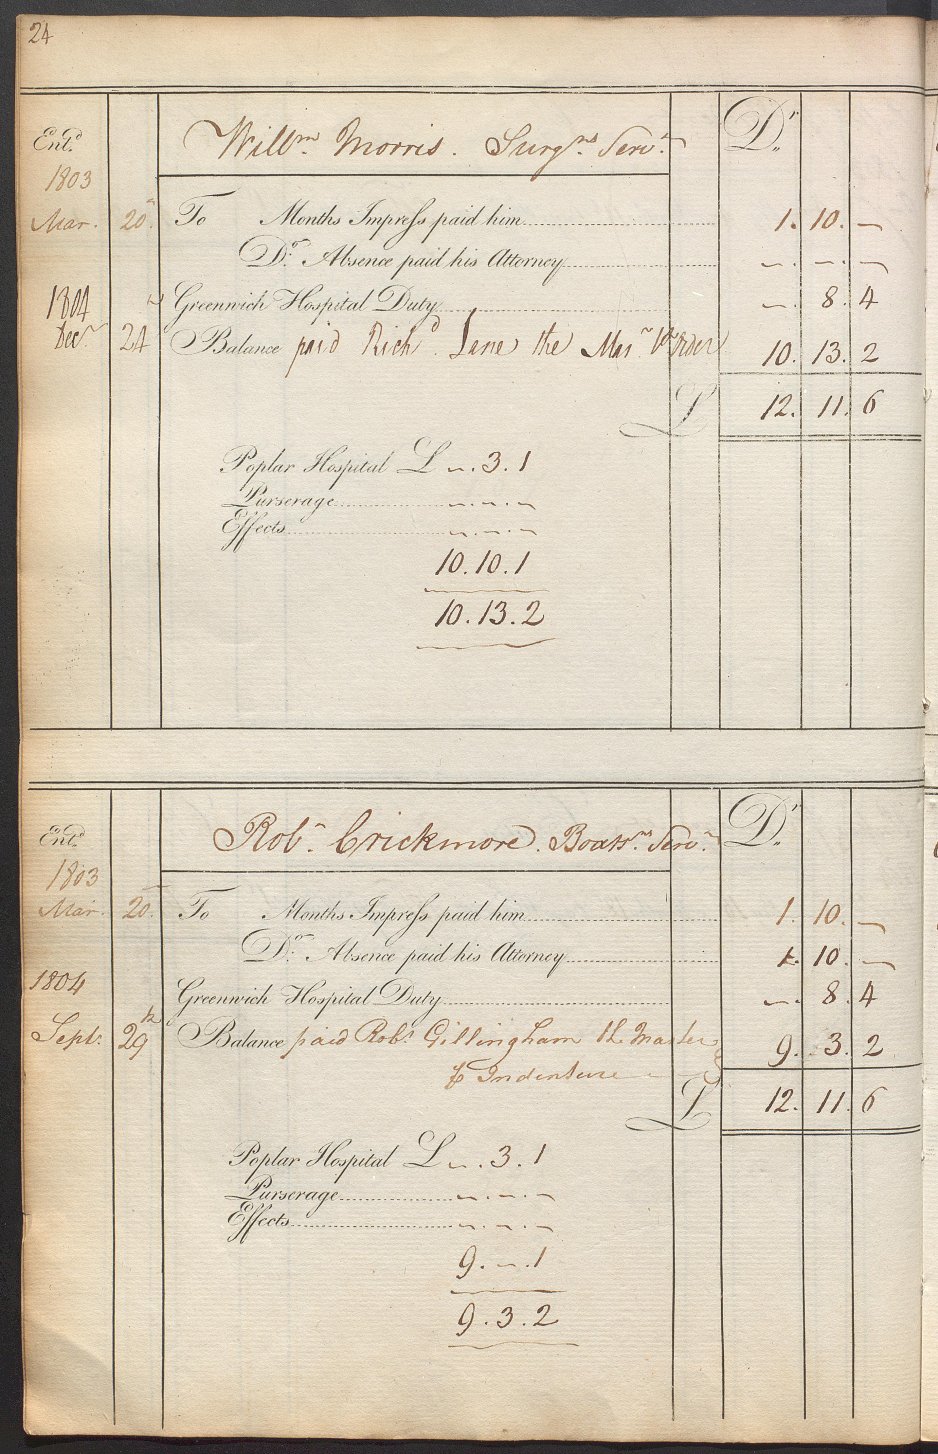 24
Ent.d Will.m Morris. Surg.ns Serv.t Dr
1803
Mar. 20. To Months Impress paid him 1. 10. —
Do. Absence paid his Attorney —. —. —
1804 Greenwich Hospital Duty —. 8. 4
Dec.r 24 Balance paid Rich.d Lane the Mas.r 10. 13. 2
L 12. 11. 6
Poplar Hospital L —. 3. 1
Purserage —. —. —
Effects —. —. —
10. 10. 1
10. 13. 2
Ent.d Rob.t Crickmore. Boats.ns Serv.t Dr
1803
Mar. 20. To Months Impress paid him 1. 10. —
Do. Absence paid his Attorney 1. 10. —
1804 Greenwich Hospital Duty —. 8. 4
Sept.r 29th Balance paid Rob.t Gillingham the Master 9. 3. 2
Indenture
L 12. 11. 6
Poplar Hospital L —. 3. 1
Purserage —. —. —
Effects —. —. —
9. —. 1
9. 3. 2